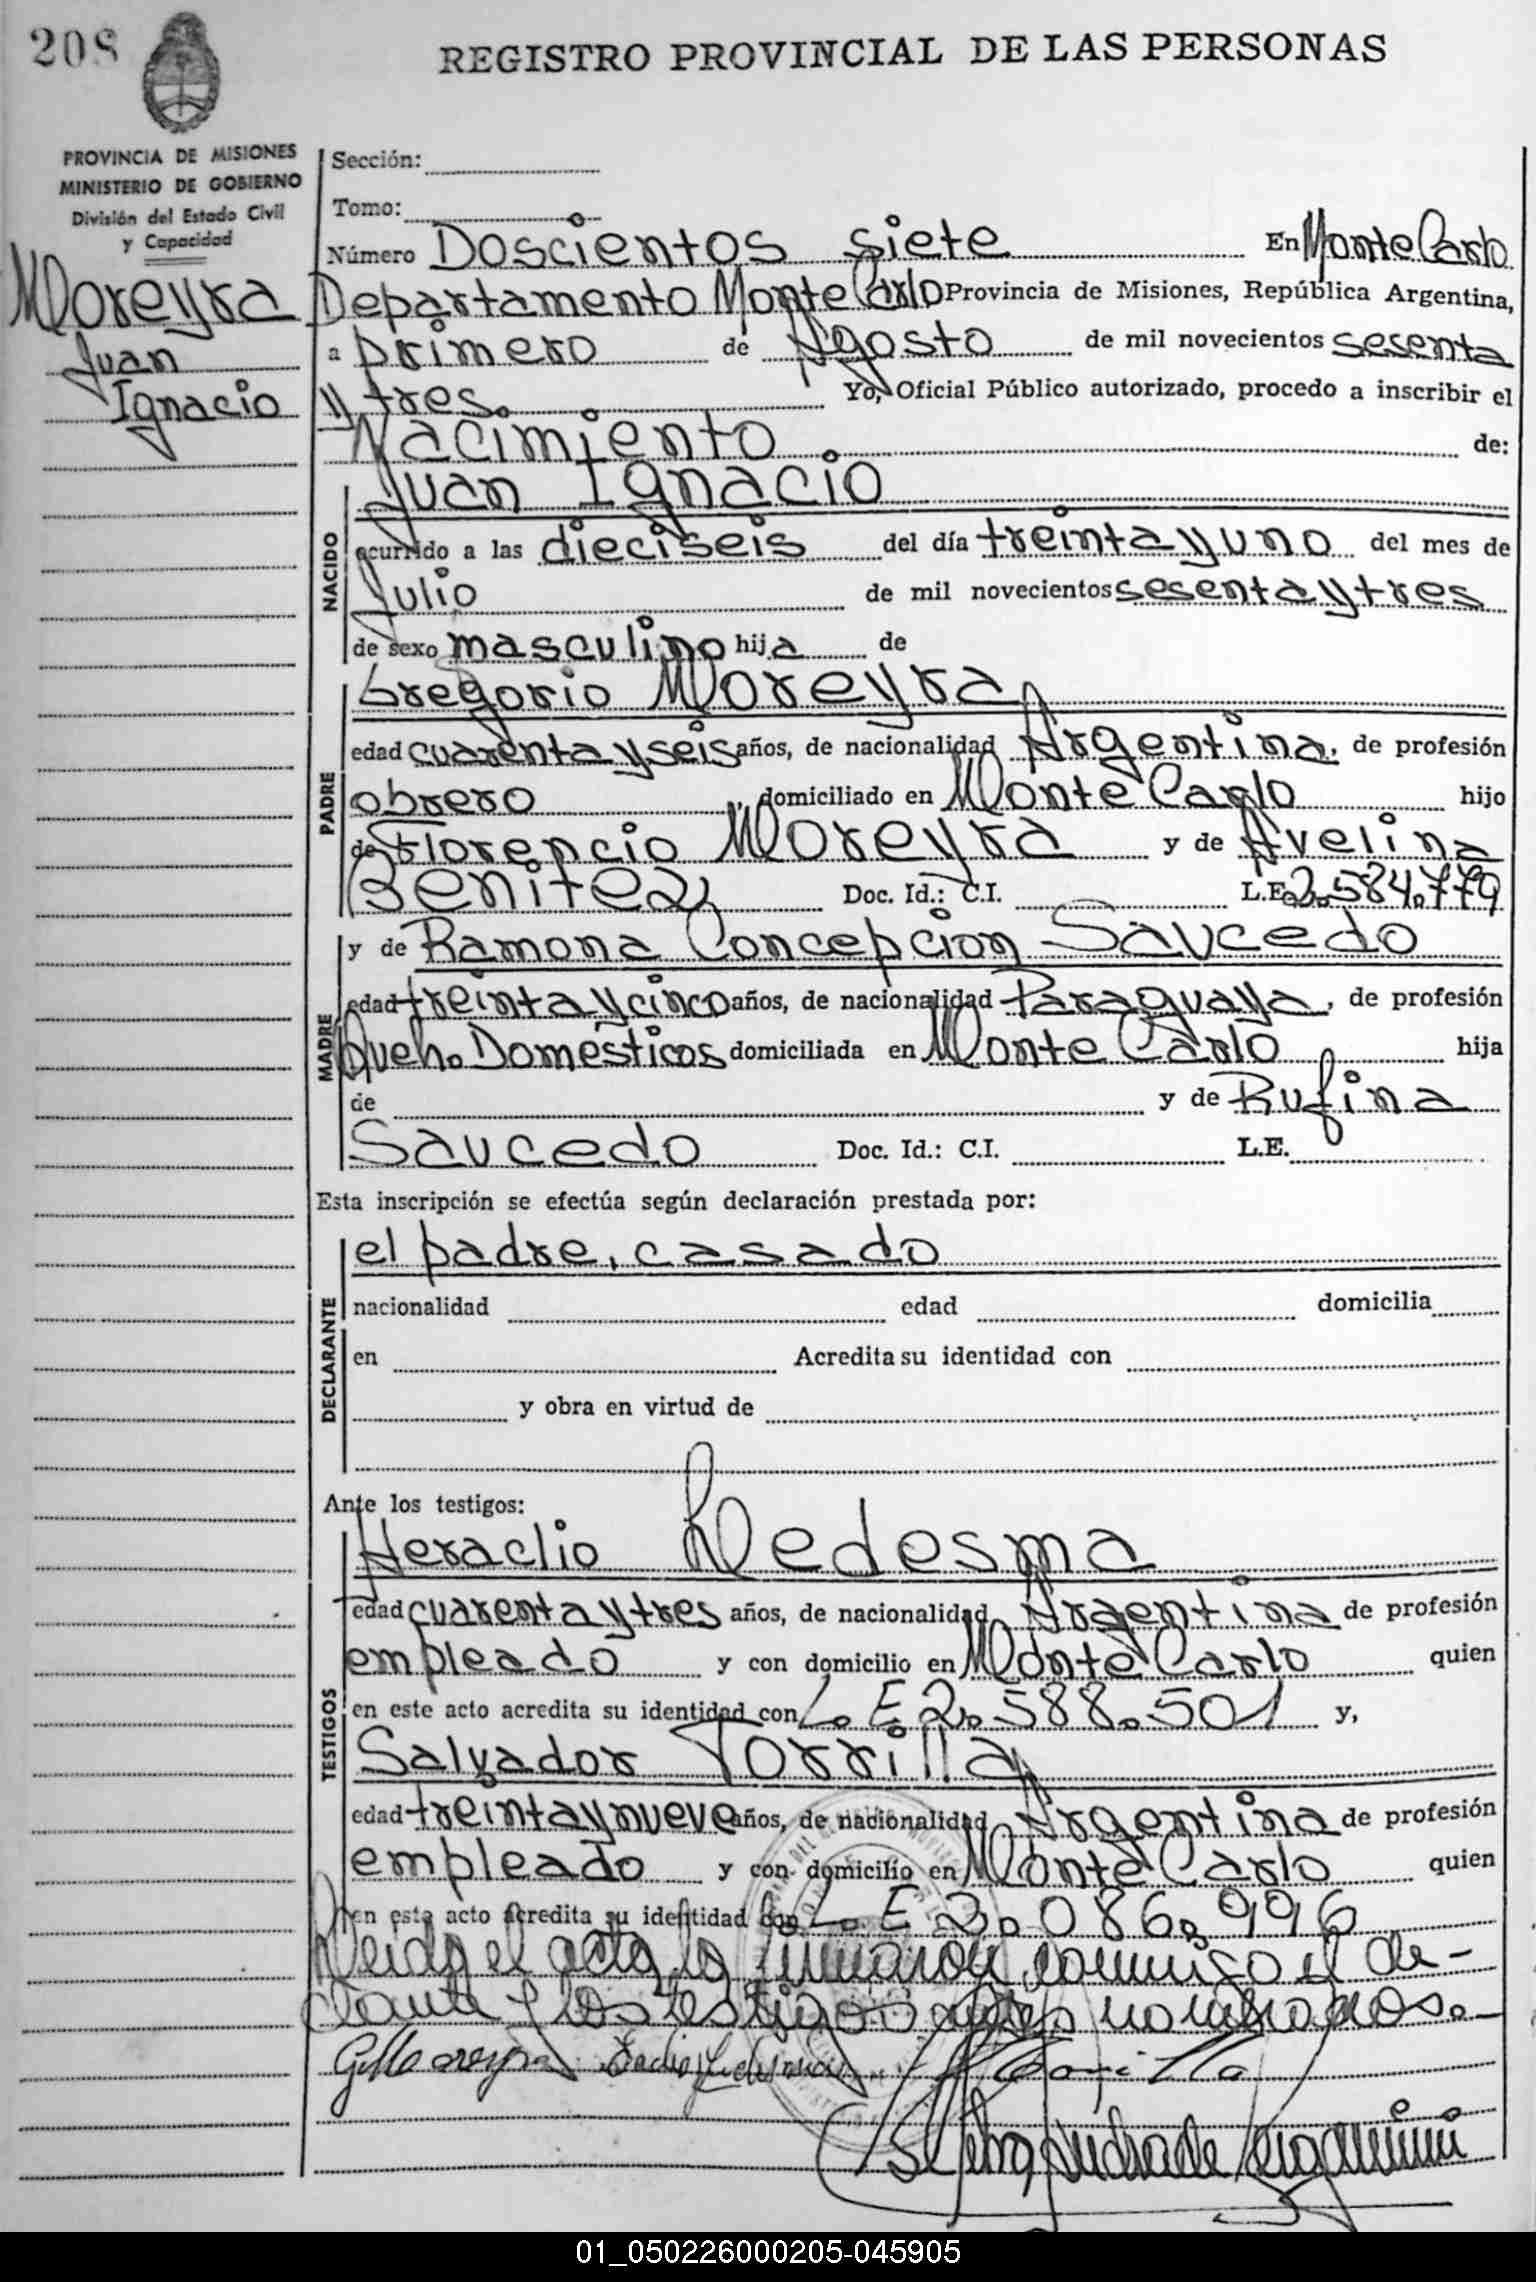 208
REGISTRO PROVINCIAL DE LAS PERSONAS
PROVINCIA DE MISIONES
MINISTERIO DE GOBIERNO
División del Estado Civil
y Capacidad
Moreyra
Juan
Ignacio
Sección:
Tomo:
Número Doscientos siete En Monte Carlo
Departamento Monte Carlo Provincia de Misiones, República Argentina,
a primero de Agosto de mil novecientos sesenta
y tres. Yo, Oficial Público autorizado, procedo a inscribir el
Nacimiento de:
NACIDO
Juan Ignacio
ocurrido a las dieciseis del día treinta y uno del mes de
Julio de mil novecientos sesenta y tres
de sexo masculino hija de
PADRE
Gregorio Moreyra
edad cuarenta y seis años, de nacionalidad Argentina, de profesión
obrero domiciliado en Monte Carlo hijo
de Florencio Moreyra y de Avelina
Benitez Doc. Id.: C.I. L.E. 2.584.779
MADRE
y de Ramona Concepcion Saucedo
edad treinta y cinco años, de nacionalidad Paraguaya, de profesión
Queh. Domésticos domiciliada en Monte Carlo hija
de y de Rufina
Saucedo Doc. Id.: C.I. L.E.
Esta inscripción se efectúa según declaración prestada por:
DECLARANTE
el padre, casado
nacionalidad edad domicilia
en Acredita su identidad con
y obra en virtud de
Ante los testigos:
TESTIGOS
Heraclio Ledesma
edad cuarenta y tres años, de nacionalidad Argentina de profesión
empleado y con domicilio en Monte Carlo quien
en este acto acredita su identidad con L.E 2.588.501 y,
Salvador Torrilla
edad treinta y nueve años, de nacionalidad Argentina de profesión
empleado y con domicilio en Monte Carlo quien
en este acto acredita su identidad con L.E 2.086.996
Leida el acta, la firmaron conmigo el de-
clarante y los testigos antes nombrados.-
G Moreyra
01_050226000205-045905